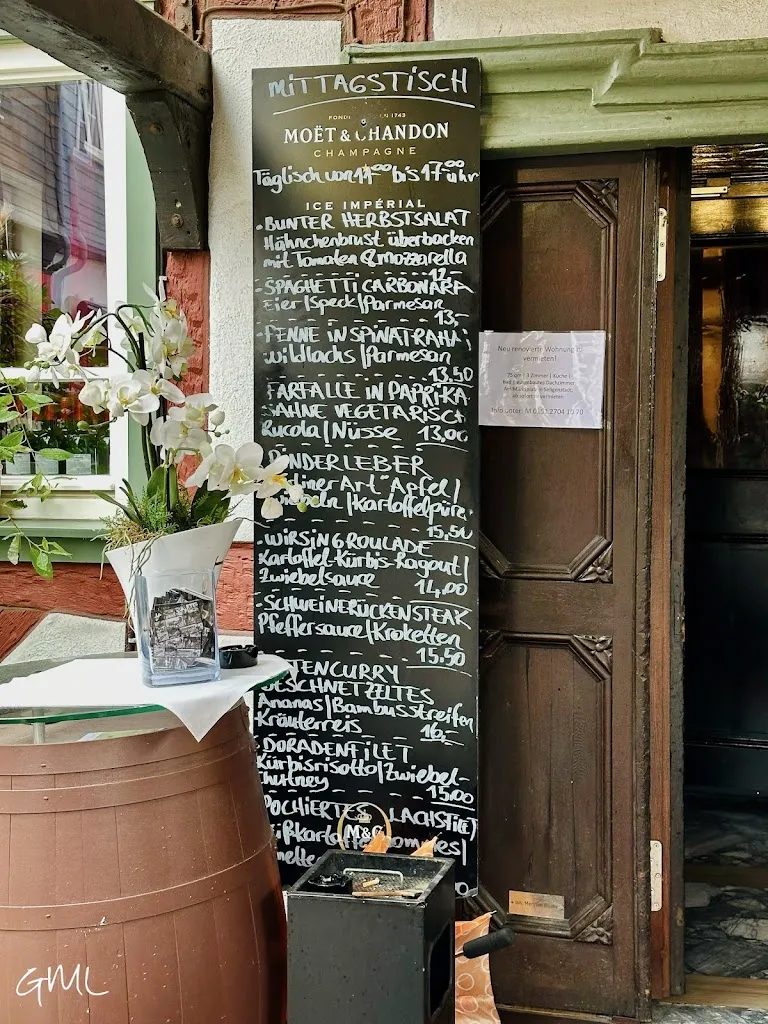 MITTAGSTISCH
MOËT & CHANDON
CHAMPAGNE
Täglich von 11⁰⁰ bis 17⁰⁰ uhr
ICE IMPÉRIAL
- BUNTER HERBSTSALAT
Hähnchenbrust überbacken
mit Tomaten & mozzarella
12,-
- SPAGHETTI CARBONARA
Eier | Speck | Parmesan
13,-
- PENNE IN SPINATRAHM
wildlachs | Parmesan
13,50
FARFALLE IN PAPRIKA
SAHNE VEGETARISCH
Rucola | Nüsse 13,00
RINDERLEBER
Art" Apfel |
Kartoffelpüre
15,50
- WIRSINGROULADE
Kartoffel-Kürbis-Ragout |
Zwiebelsauce 14,00
- SCHWEINERÜCKENSTEAK
Pfeffersauce | Kroketten
15,50
ENTENCURRY
GESCHNETZELTES
Ananas | Bambusstreifen
Kräuterreis 16,-
- DORADENFILET
Kürbisrisotto | Zwiebel-
chutney 15,00
POCHIERTES LACHSFILET
M&C
Neu renovierte Wohnung zu
vermieten!
75 qm | 3 Zimmer | Küche |
Info unter: M 0151 2704 1020
GML